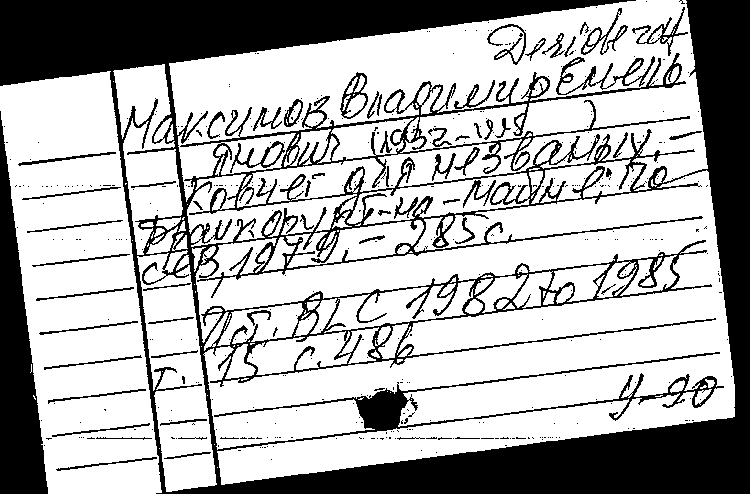 Desiderat
Максимов, Владимир Емель-
янович. (1932-1995)
Ковчег для незваных. -
Франкфурт-на-Майне; По
сев, 1979. - 285 с.
Ист. BLC 1982 to 1985
т. 15 с. 486
У-90